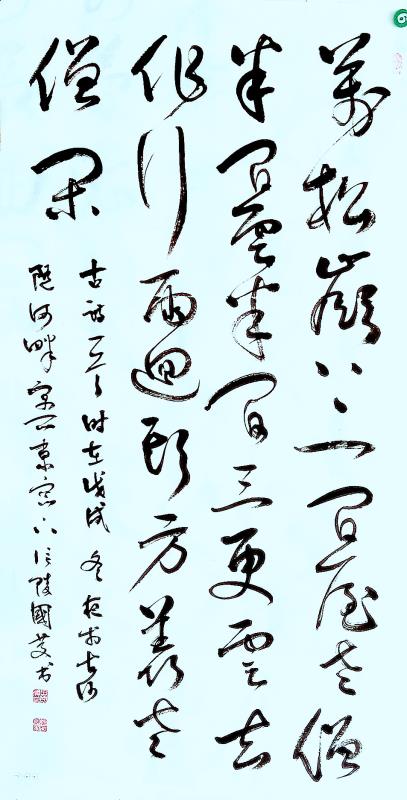 萬松嶺上一間屋老僧
半間雲半間三更雲去
作行雨迴頭方羨老
僧閑
古詩一首時在戊戌冬夜於
河畔東窗下信陵國慶書